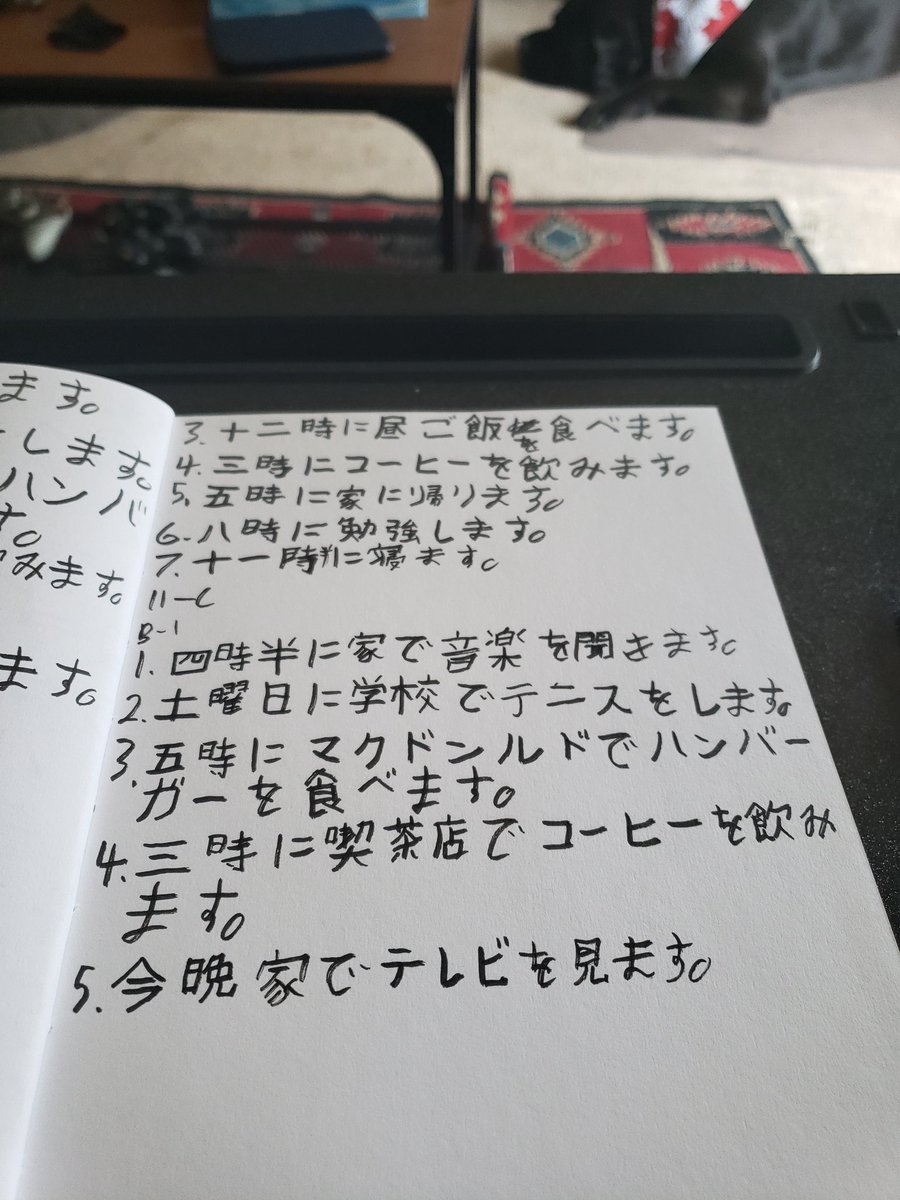 ます。
します。
ハンバ
す。
みます。
ます。
3. 十二時に昼ご飯を食べます。
4. 三時にコーヒーを飲みます。
5. 五時に家に帰ります。
6. 八時に勉強します。
7. 十一時半に寝ます。
11-C
B-1
1. 四時半に家で音楽を聞きます。
2. 土曜日に学校でテニスをします。
3. 五時にマクドンルドでハンバー
ガーを食べます。
4. 三時に喫茶店でコーヒーを飲み
ます。
5. 今晩家でテレビを見ます。